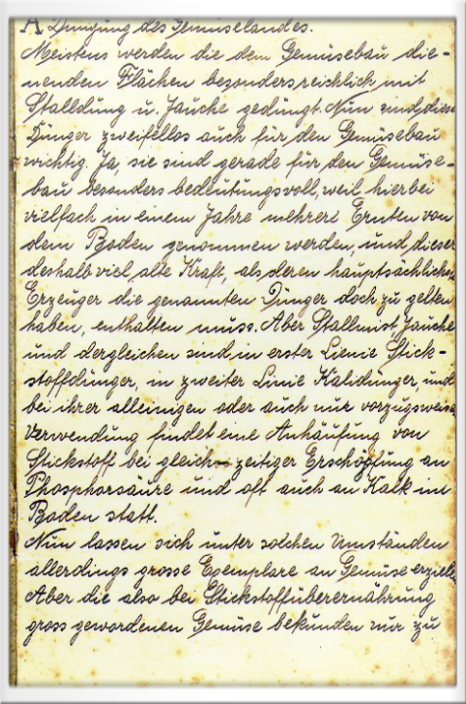 A Düngung des Gemüselandes.
Meistens werden die dem Gemüsebau die-
nenden Flächen besonders reichlich mit
Stalldung u. Jauche gedüngt. Nun sind diese
Dünger zweifellos auch für den Gemüsebau
wichtig. Ja, sie sind gerade für den Gemüse-
bau besonders bedeutungsvoll, weil hierbei
vielfach in einem Jahre mehrere Ernten von
dem Boden genommen werden, und dieser
deshalb viel alte Kraft, als deren hauptsächlichen
Erzeuger die genannten Dünger doch zu gelten
haben, enthalten muss. Aber Stallmist, Jauche
und dergleichen sind in erster Lienie Stick-
stoffdünger, in zweiter Linie Kalidünger, und
bei ihrer alleinigen oder auch nur vorzugsweisen
Verwendung findet eine Anhäufung von
Stickstoff bei gleich- zeitiger Erschöpfung an
Phosphorsäure und oft auch an Kalk im
Boden statt.
Nun lassen sich unter solchen Umständen
allerdings grosse Exemplare an Gemüse erzielen
Aber die also bei Stickstoffüberernährung
gross gewordenen Gemüse bekunden nur zu